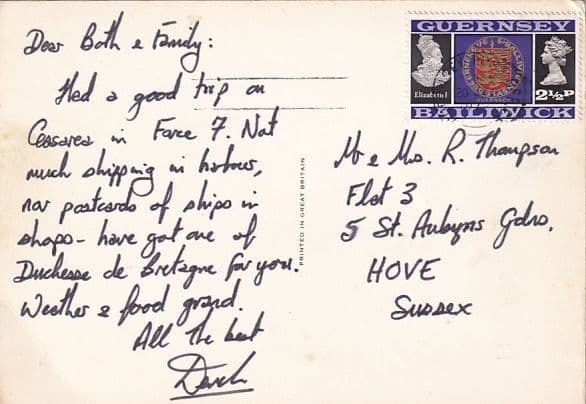 Dear Both & Family:
Had a good trip on
Caesarea in Force 7. Not
much shipping in harbour,
nor postcards of ships in
shops - have got one of
Duchesse de Bretagne for you.
Weather & food grand.
All the best
Derek
PRINTED IN GREAT BRITAIN
GUERNSEY
Elizabeth I
2½P
BAILIWICK
Mr & Mrs. R. Thompson
Flat 3
5 St. Aubyns Gdns,
HOVE
Sussex